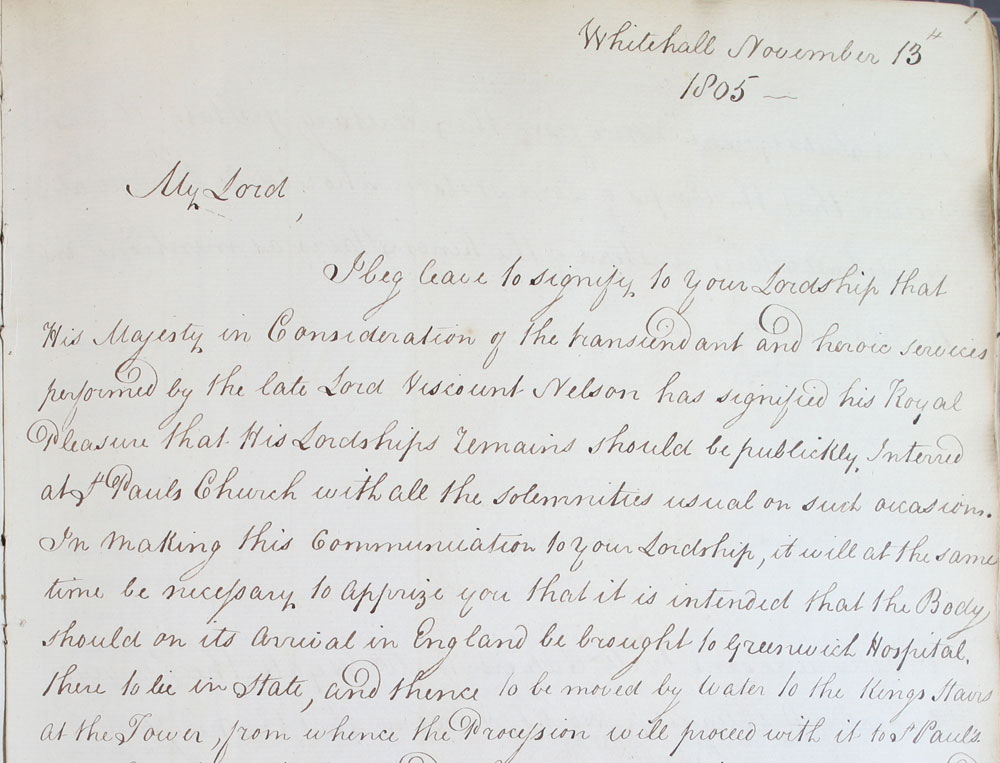 1
Whitehall November 13th
1805 —
My Lord,
I beg leave to signify to your Lordship that
His Majesty in Consideration of the transcendant and heroic services
performed by the late Lord Viscount Nelson has signified his Royal
Pleasure that His Lordships remains should be publickly Interred
at St Pauls Church with all the solemnities usual on such occasions.
In making this Communication to your Lordship, it will at the same
time be necessary to apprize you that it is intended that the Body
should on its arrival in England be brought to Greenwich Hospital,
there to lie in State, and thence to be moved by water to the Kings Stairs
at the Tower, from whence the Procession will proceed with it to St Paul's.